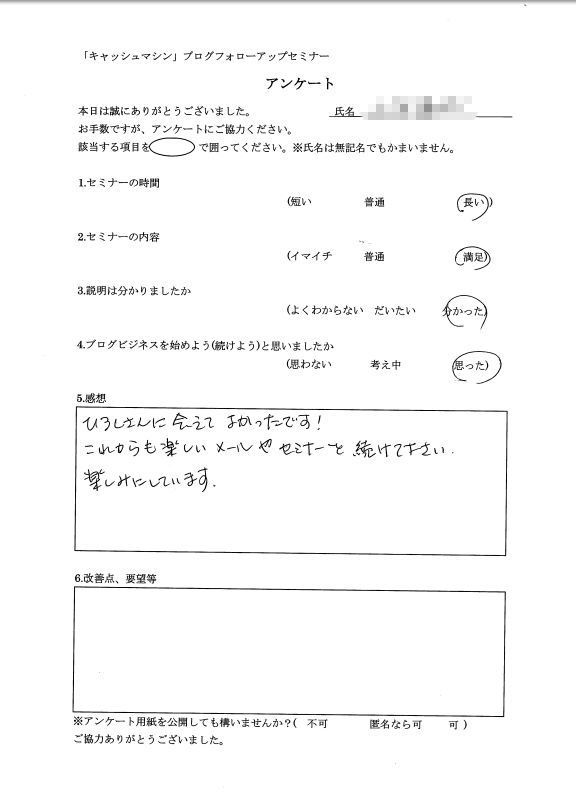 「キャッシュマシン」ブログフォローアップセミナー
アンケート
本日は誠にありがとうございました。 氏名
お手数ですが、アンケートにご協力ください。
該当する項目を で囲ってください。※氏名は無記名でもかまいません。
1.セミナーの時間
(短い 普通 長い)
2.セミナーの内容
(イマイチ 普通 満足)
3.説明は分かりましたか
(よくわからない だいたい 分かった)
4.ブログビジネスを始めよう(続けよう)と思いましたか
(思わない 考え中 思った)
5.感想
ひろしさんに会えてよかったです!
これからも楽しいメールやセミナーを続けて下さい.
楽しみにしています.
6.改善点、要望等
※アンケート用紙を公開しても構いませんか?( 不可 匿名なら可 可 )
ご協力ありがとうございました。